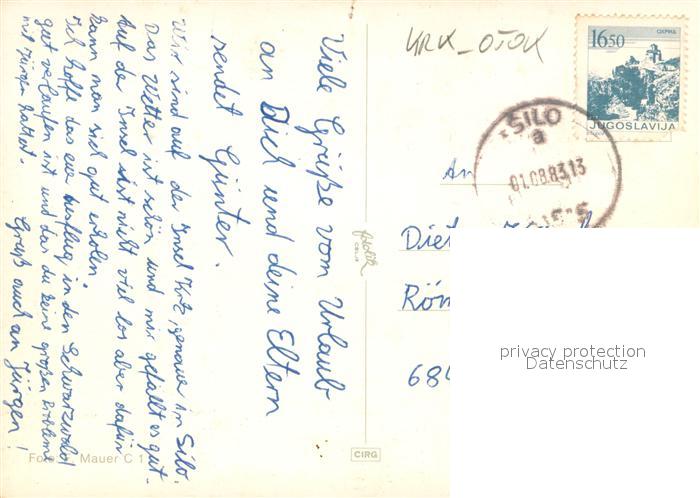 Viele Grüße vom Urlaub
an Dich und deine Eltern
sendet Günter.
Wir sind auf der Insel Krk, genauer in Silo.
Das Wetter ist schön und mir gefällt es gut.
Auf der Insel ist nicht viel los aber dafür
kann man sich gut erholen.
Ich hoffe das euer Ausflug in den Schwarzwald
gut verlaufen ist und das du keine großen Probleme
mit Jürgen hattest.
Gruß auch an Jürgen!
KRK_OTOK
OHRID
16 50
JUGOSLAVIJA
ŠILO
a
01.08.83.13
An
Diet
Röm
684
privacy protection
Datenschutz
Foto Mauer C 1
CIRG